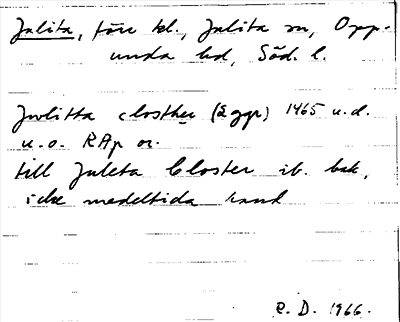 Julita, före kl., Julita sn, Opp-
unda hd, Söd. l.
Jwlitta closther (2 ggr) 1465 u.d.
u.o. RAp or.
till Juleta Closter ib. bak,
icke medeltida hand
R. D. 1966.